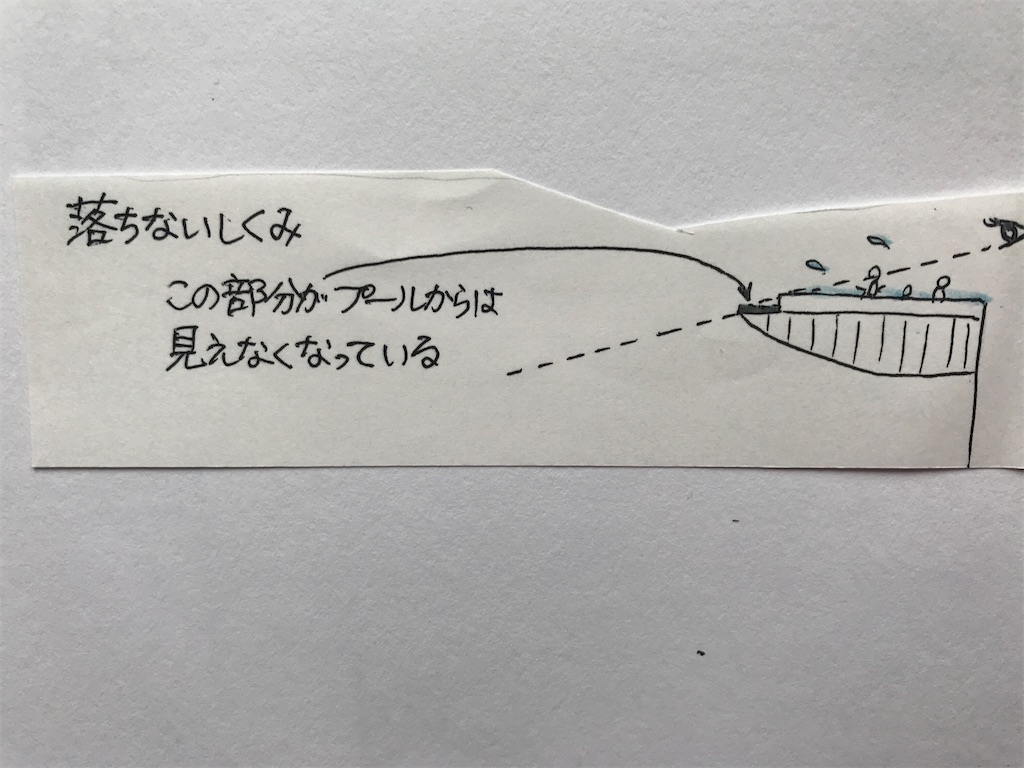 落ちないしくみ
この部分がプールからは
見えなくなっている